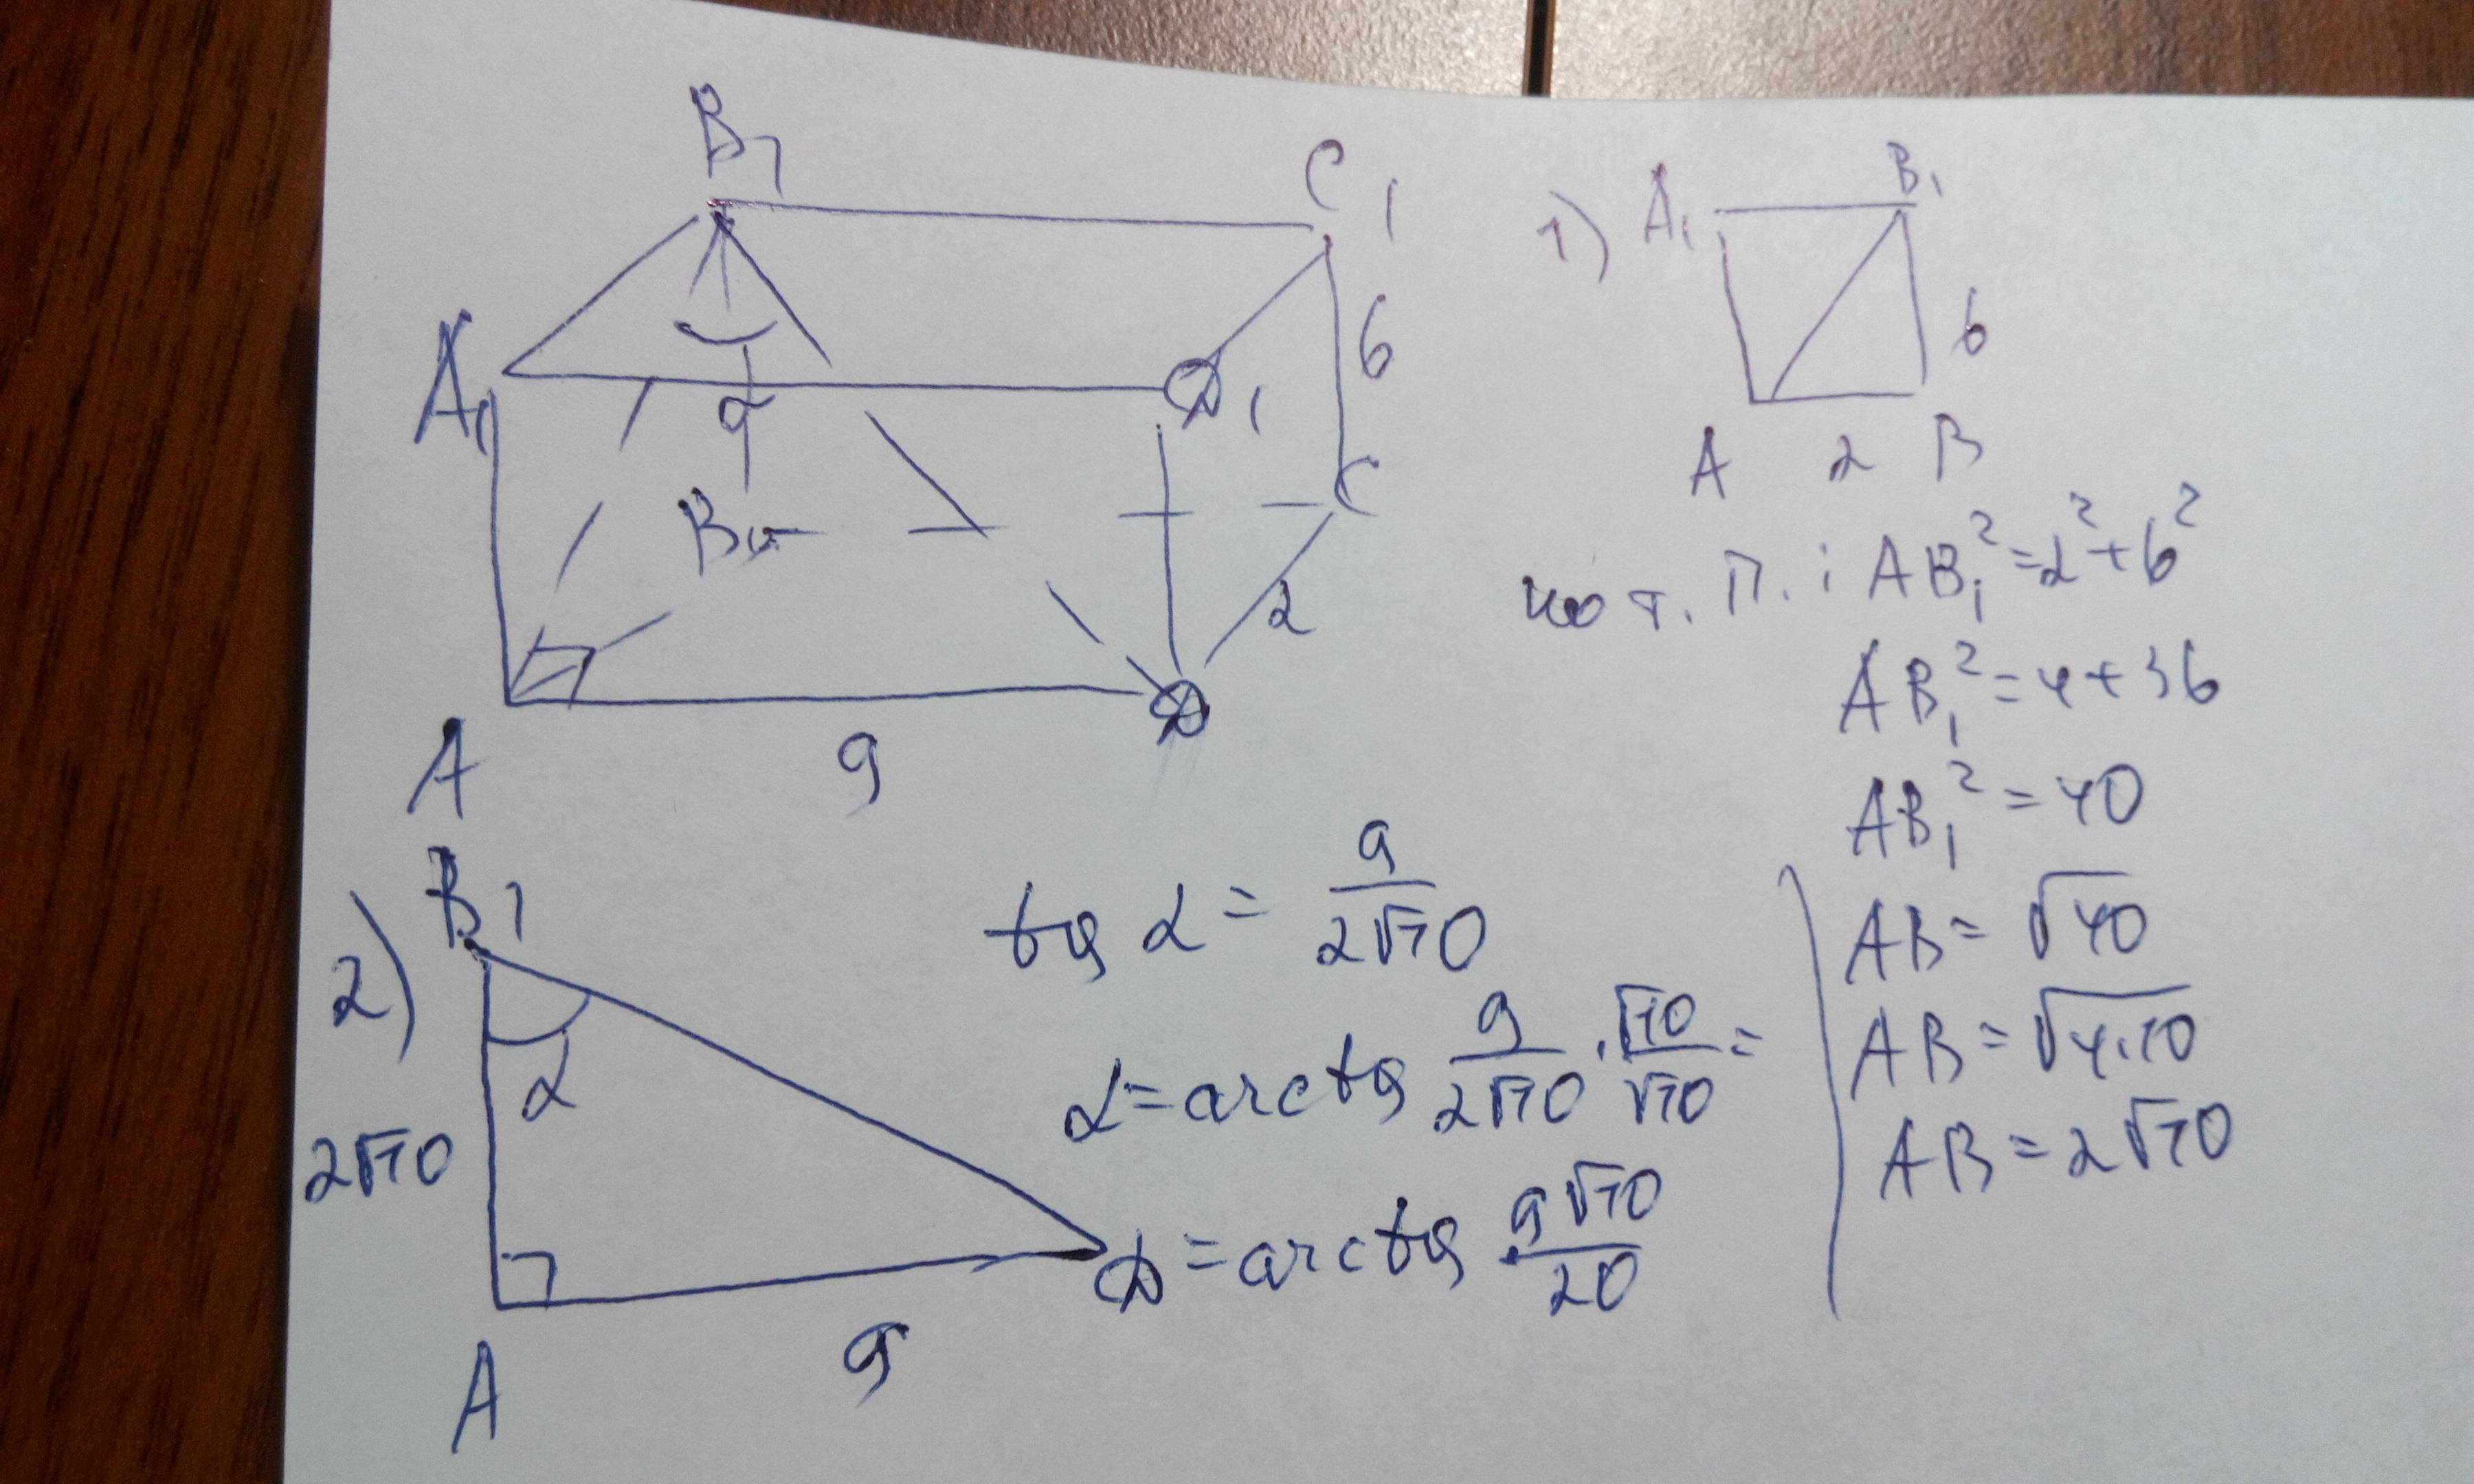 B₁
C₁
A₁
D₁
6
α
B
C
2
A
9
D
1) A₁ B₁
6
A 2 B
по т. П.: AB₁² = 2² + 6²
AB₁² = 4 + 36
AB₁² = 40
AB = √40
AB = √4·10
AB = 2√10
2) B₁
α
2√10
A
9
D
tg α = 9/2√10
α = arctg 9/2√10 · √10/√10 =
= arctg 9√10/20